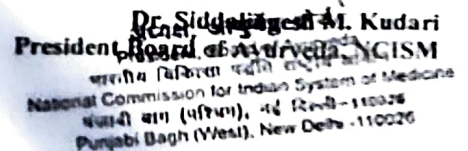 Dr. Siddalingesh M. Kudari
President, Board of Ayurveda, NCISM
भारतीय चिकित्सा पद्धति राष्ट्रीय
National Commission for Indian System of Medicine
पंजाबी बाग (पश्चिम), नई दिल्ली-110026
Punjabi Bagh (West), New Delhi -110026